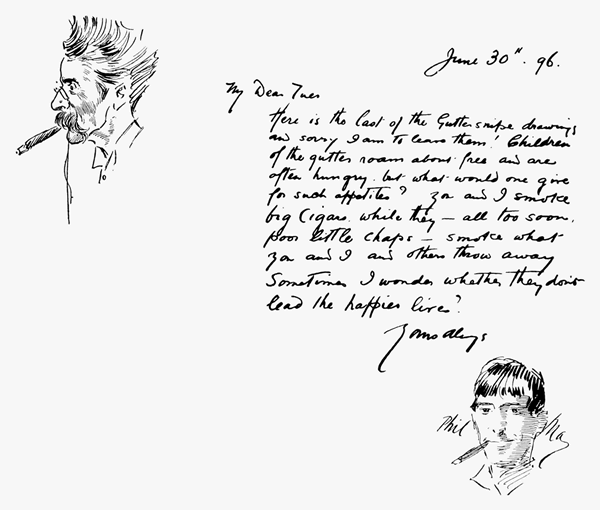 June 30". 96.
My Dear Tuer
Here is the last of the Guttersnipe drawings
and sorry I am to leave them! Children
of the gutter roam about free and are
often hungry. but what would one give
for such appetites? You and I smoke
big Cigars. while they – all too soon.
poor little chaps – smoke what
you and I and others throw away
Sometimes I wonder whether they dont
lead the happier lives?
Yours always
Phil May